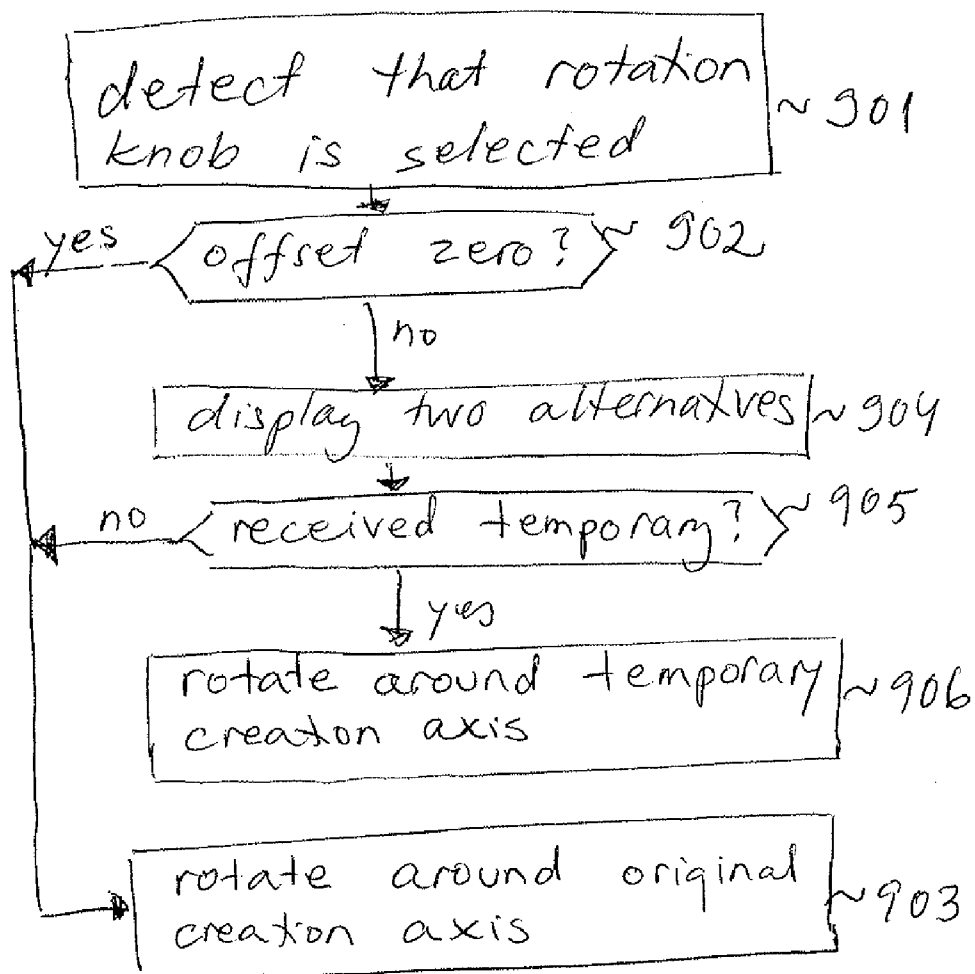 detect that rotation
knob is selected
~ 901
yes
offset zero?
~ 902
no
display two alternatves
~ 904
no
received temporary?
~ 905
yes
rotate around temporary
creation axis
~ 906
rotate around original
creation axis
~ 903